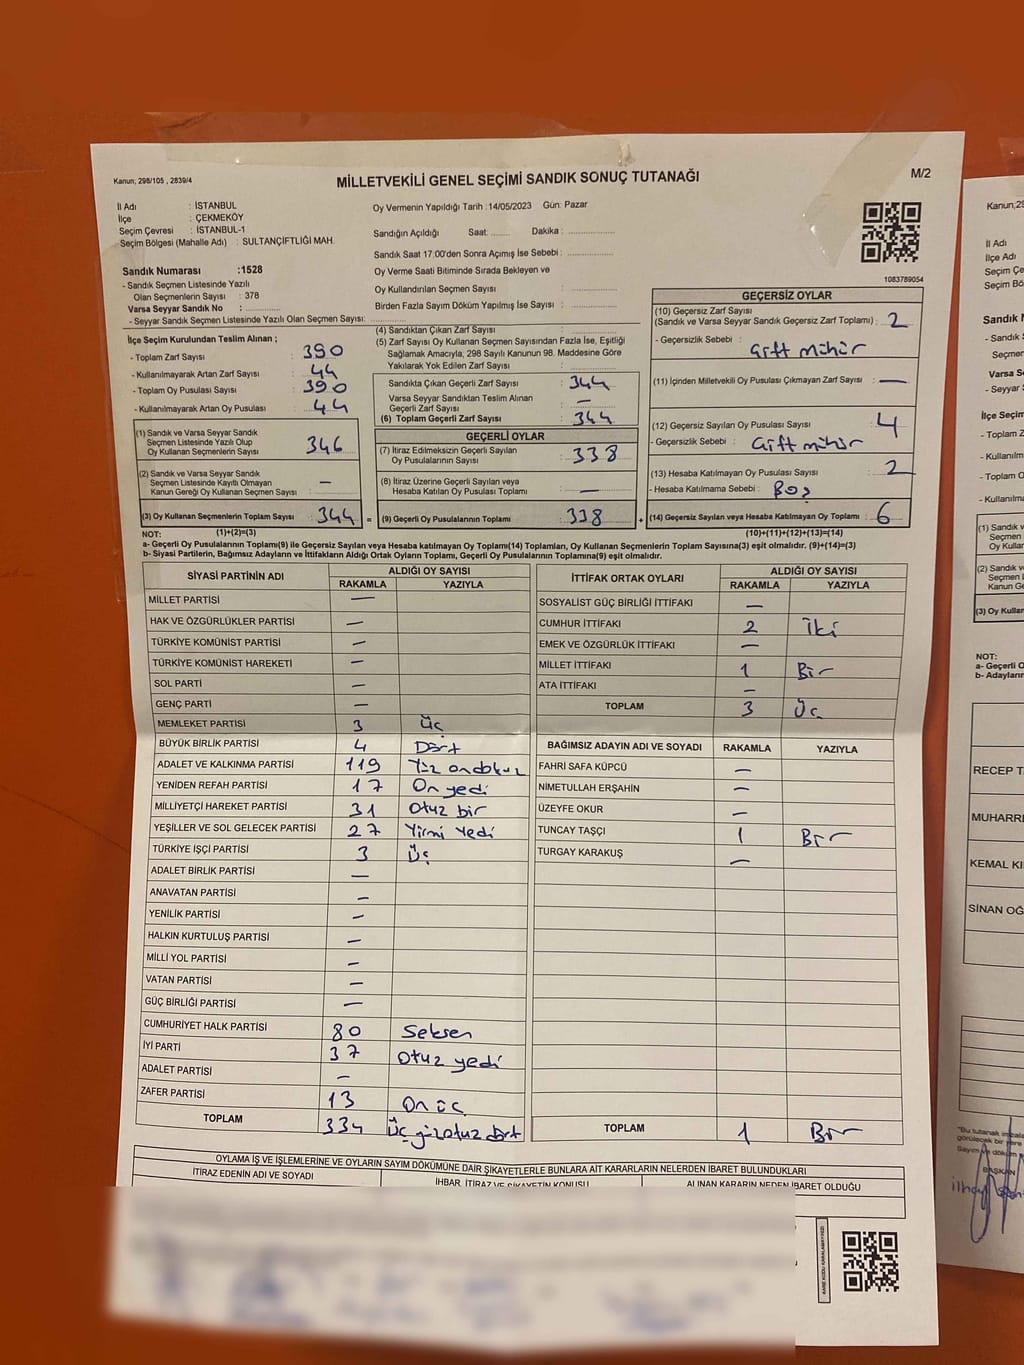 Kanun; 298/105 , 2839/4
MİLLETVEKİLİ GENEL SEÇİMİ SANDIK SONUÇ TUTANAĞI
M/2
İl Adı : İSTANBUL
İlçe : ÇEKMEKÖY
Seçim Çevresi : İSTANBUL-1
Seçim Bölgesi (Mahalle Adı) : SULTANÇİFTLİĞİ MAH.
Oy Vermenin Yapıldığı Tarih :14/05/2023 Gün: Pazar
Sandığın Açıldığı Saat: ........ Dakika : ....................
Sandık Saat 17:00'den Sonra Açımış İse Sebebi : ....................
Oy Verme Saati Bitiminde Sırada Bekleyen ve
Oy Kullandırılan Seçmen Sayısı : ....................
Birden Fazla Sayım Döküm Yapılmış İse Sayısı : ....................
1083789054
Sandık Numarası :1528
- Sandık Seçmen Listesinde Yazılı
Olan Seçmenlerin Sayısı : 378
Varsa Seyyar Sandık No : ....................
- Seyyar Sandık Seçmen Listesinde Yazılı Olan Seçmen Sayısı: ............
İlçe Seçim Kurulundan Teslim Alınan ;
- Toplam Zarf Sayısı : 390
- Kullanılmayarak Artan Zarf Sayısı : 44
- Toplam Oy Pusulası Sayısı : 390
- Kullanılmayarak Artan Oy Pusulası : 44
(1) Sandık ve Varsa Seyyar Sandık
Seçmen Listesinde Yazılı Olup
Oy Kullanan Seçmenlerin Sayısı : 346
(2) Sandık ve Varsa Seyyar Sandık
Seçmen Listesinde Kayıtlı Olmayan
Kanun Gereği Oy Kullanan Seçmen Sayısı : –
(3) Oy Kullanan Seçmenlerin Toplam Sayısı : 344 =
(1)+(2)=(3)
(4) Sandıktan Çıkan Zarf Sayısı : ....................
(5) Zarf Sayısı Oy Kullanan Seçmen Sayısından Fazla İse, Eşitliği
Sağlamak Amacıyla, 298 Sayılı Kanunun 98. Maddesine Göre
Yakılarak Yok Edilen Zarf Sayısı : ....................
Sandıkta Çıkan Geçerli Zarf Sayısı : 344
Varsa Seyyar Sandıktan Teslim Alınan
Geçerli Zarf Sayısı : –
(6) Toplam Geçerli Zarf Sayısı : 344
GEÇERLİ OYLAR
(7) İtiraz Edilmeksizin Geçerli Sayılan
Oy Pusulalarının Sayısı : 338
(8) İtiraz Üzerine Geçerli Sayılan veya
Hesaba Katılan Oy Pusulası Toplamı : –
(9) Geçerli Oy Pusulalarının Toplamı : 338 +
GEÇERSİZ OYLAR
(10) Geçersiz Zarf Sayısı
(Sandık ve Varsa Seyyar Sandık Geçersiz Zarf Toplamı) : 2
- Geçersizlik Sebebi : Çift mühür
(11) İçinden Milletvekili Oy Pusulası Çıkmayan Zarf Sayısı : –
(12) Geçersiz Sayılan Oy Pusulası Sayısı : 4
- Geçersizlik Sebebi : Çift mühür
(13) Hesaba Katılmayan Oy Pusulası Sayısı : 2
- Hesaba Katılmama Sebebi : Boş
(14) Geçersiz Sayılan veya Hesaba Katılmayan Oy Toplamı : 6
(10)+(11)+(12)+(13)=(14)
NOT:
a- Geçerli Oy Pusulalarının Toplamı(9) ile Geçersiz Sayılan veya Hesaba katılmayan Oy Toplamı(14) Toplamları, Oy Kullanan Seçmenlerin Toplam Sayısına(3) eşit olmalıdır. (9)+(14)=(3)
b- Siyasi Partilerin, Bağımsız Adayların ve İttifakların Aldığı Ortak Oyların Toplamı, Geçerli Oy Pusulasının Toplamına(9) eşit olmalıdır.
SİYASİ PARTİNİN ADI ALDIĞI OY SAYISI
RAKAMLA YAZIYLA
MİLLET PARTİSİ –
HAK VE ÖZGÜRLÜKLER PARTİSİ –
TÜRKİYE KOMÜNİST PARTİSİ –
TÜRKİYE KOMÜNİST HAREKETİ –
SOL PARTİ –
GENÇ PARTİ –
MEMLEKET PARTİSİ 3 Üç
BÜYÜK BİRLİK PARTİSİ 4 Dört
ADALET VE KALKINMA PARTİSİ 119 Yüz ondokuz
YENİDEN REFAH PARTİSİ 17 On yedi
MİLLİYETÇİ HAREKET PARTİSİ 31 Otuz bir
YEŞİLLER VE SOL GELECEK PARTİSİ 27 Yirmi yedi
TÜRKİYE İŞÇİ PARTİSİ 3 Üç
ADALET BİRLİK PARTİSİ –
ANAVATAN PARTİSİ –
YENİLİK PARTİSİ –
HALKIN KURTULUŞ PARTİSİ –
MİLLİ YOL PARTİSİ –
VATAN PARTİSİ –
GÜÇ BİRLİĞİ PARTİSİ –
CUMHURİYET HALK PARTİSİ 80 Seksen
İYİ PARTİ 37 Otuz yedi
ADALET PARTİSİ –
ZAFER PARTİSİ 13 On üç
TOPLAM 334 Üç yüz otuz dört
İTTİFAK ORTAK OYLARI ALDIĞI OY SAYISI
RAKAMLA YAZIYLA
SOSYALIST GÜÇ BİRLİĞİ İTTİFAKI –
CUMHUR İTTİFAKI 2 İki
EMEK VE ÖZGÜRLÜK İTTİFAKI –
MİLLET İTTİFAKI 1 Bir
ATA İTTİFAKI –
TOPLAM 3 Üç
BAĞIMSIZ ADAYIN ADI VE SOYADI RAKAMLA YAZIYLA
FAHRİ SAFA KÜPCÜ –
NİMETULLAH ERŞAHİN –
ÜZEYFE OKUR –
TUNCAY TAŞÇI 1 Bir
TURGAY KARAKUŞ –
TOPLAM 1 Bir
OYLAMA İŞ VE İŞLEMLERİNE VE OYLARIN SAYIM DÖKÜMÜNE DAİR ŞİKAYETLERLE BUNLARA AİT KARARLARIN NELERDEN İBARET BULUNDUKLARI
İTİRAZ EDENİN ADI VE SOYADI İHBAR, İTİRAZ VE ŞİKAYETİN KONUSU ALINAN KARARIN NEDEN İBARET OLDUĞU
Kanun;29
İl Adı
İlçe Adı
Seçim Çe
Seçim Bö
Sandık N
- Sandık
Seçmen
Varsa Se
- Seyyar
İlçe Seçim
- Toplam Z
- Kullanılm
- Toplam O
- Kullanılma
(1) Sandık v
Seçmen L
Oy Kulla
(2) Sandık ve
Seçmen L
Kanun Ge
(3) Oy Kullan
NOT:
a- Geçerli O
b- Adayların
RECEP T
MUHARRE
KEMAL KI
SİNAN OĞ
BAŞKAN